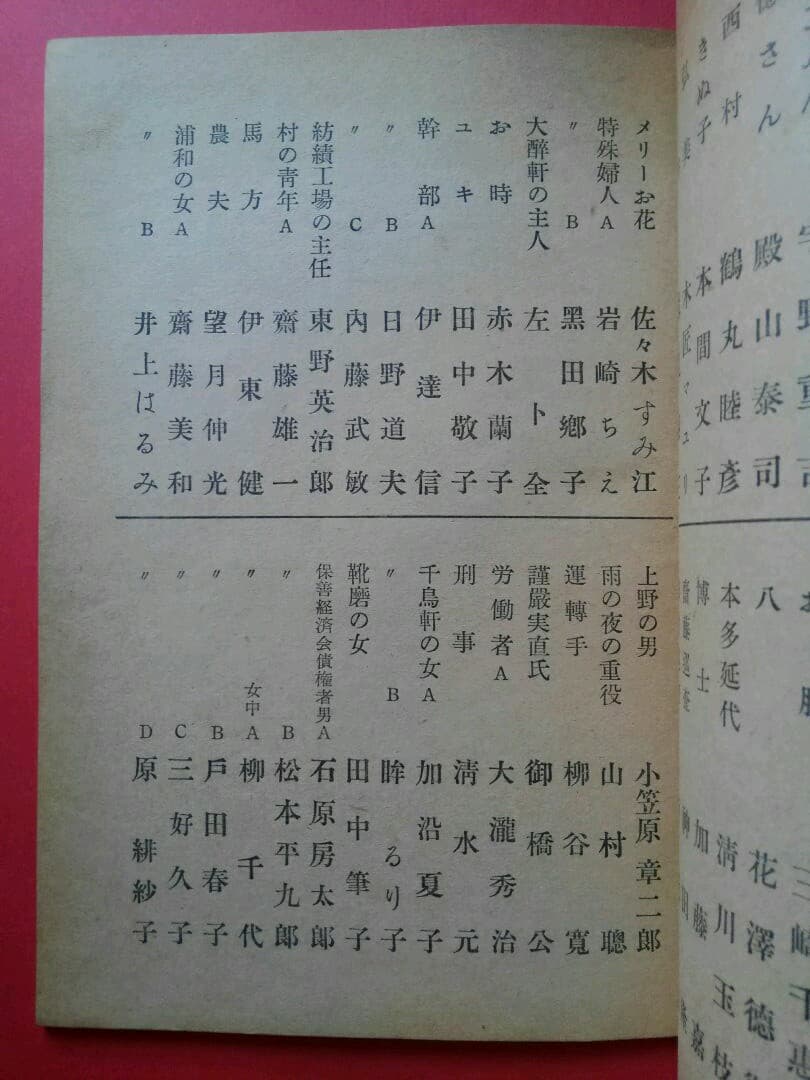 野重
さん 殿山泰司
西村 鶴丸睦彥
きぬ子 本間文子
三崎千恵
八 花澤德
本多延代 清川玉枝
博士 加藤嘉
齋藤巡査
メリーお花 佐々木すみ江
特殊婦人A 岩崎ちえ
〃B 黑田鄕子
大醉軒の主人 左卜全
お時 赤木蘭子
ユキ 田中敬子
幹部A 伊達信
〃B 日野道夫
〃C 內藤武敏
紡績工場の主任 東野英治郎
村の青年A 齋藤雄一
馬方 伊東健
農夫 望月伸光
浦和の女A 齋藤美和
〃B 井上はるみ
上野の男 小笠原章二郎
雨の夜の重役 山村聰
運轉手 柳谷寬
謹嚴実直氏 御橋公
労働者A 大瀧秀治
刑事 清水元
千鳥軒の女A 加沿夏子
〃B 眸るり子
靴磨の女 田中筆子
保善経済会債権者男A 石原房太郎
〃B 松本平九郎
〃女中A 柳千代
〃B 戶田春子
〃C 三好久子
〃D 原緋紗子